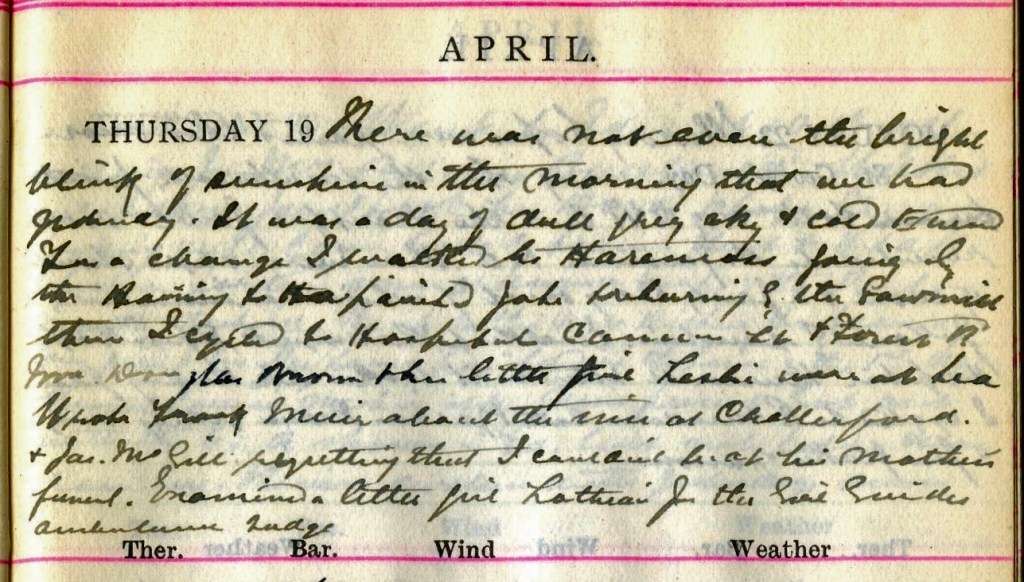 APRIL.
THURSDAY 19 There was not even the bright
blink of sunshine in the morning that we had
yesterday. It was a day of dull grey sky & cold E wind
For a change I walked to Hareness going by
the to the painted gate returning by the Sawmill
then I cycled to Hospital Cancer &
Mrs Douglas Brown & her little girl Leslie were at tea
Wrote Frank Muir about the inn at Chollerford.
& Jas. McGill regretting that I couldn't be at his Mothers
funeral. Examined a little girl Lothian for the Girl Guides
ambulance badge
Ther. Bar. Wind Weather